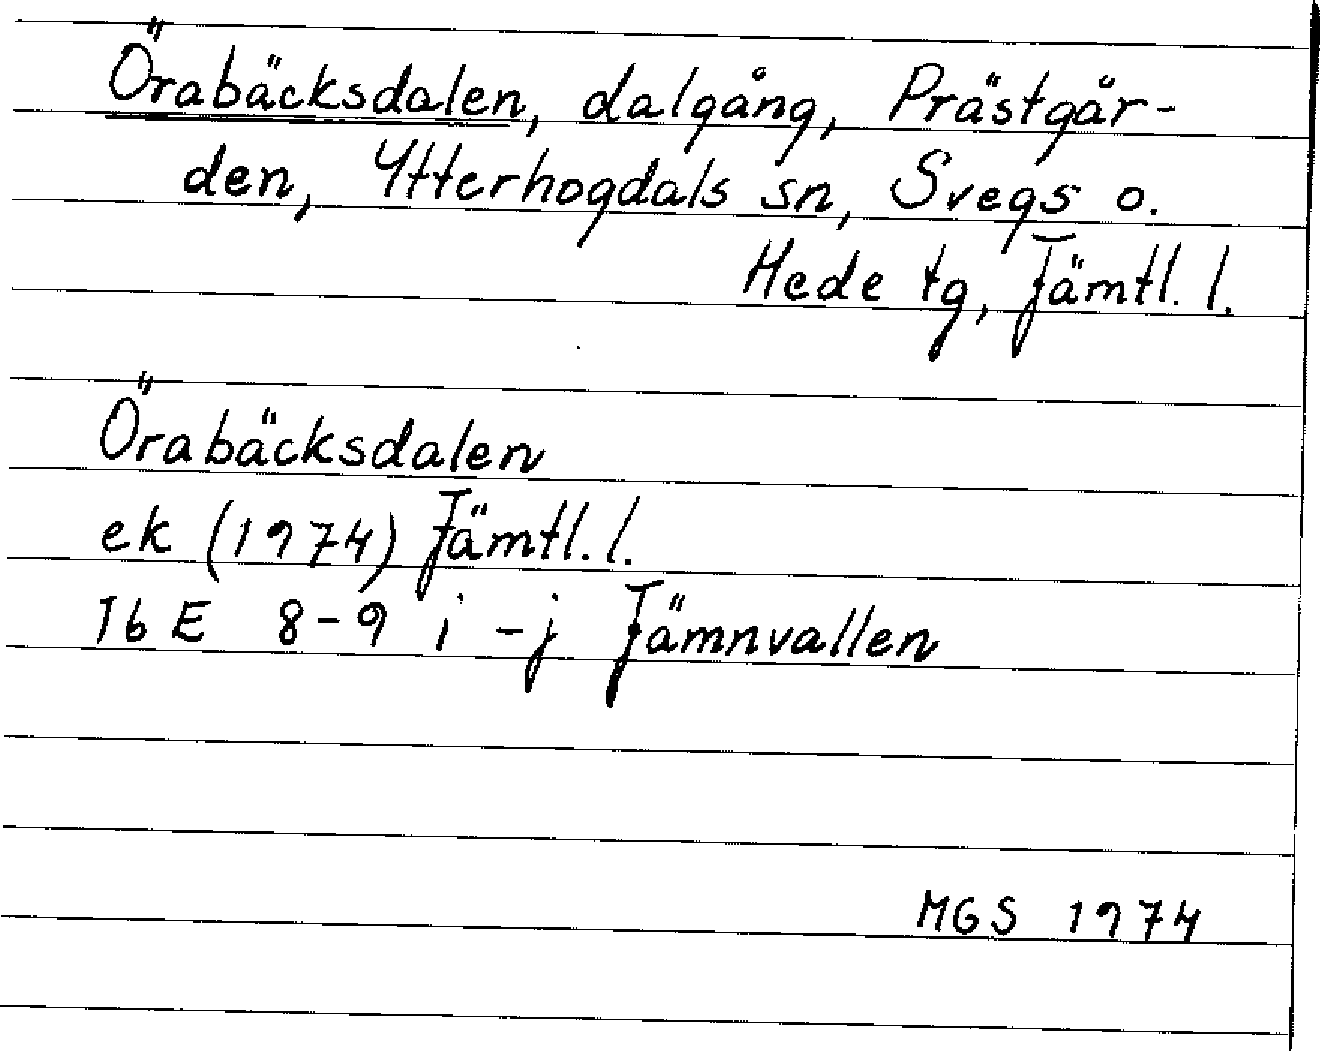 Örabäcksdalen, dalgång, Prästgår-
den, Ytterhogdals sn, Svegs o.
Hede tg, Jämtl. l.
Örabäcksdalen
ek (1974) Jämtl. l.
16 E 8-9 i -j Jämnvallen
MGS 1974